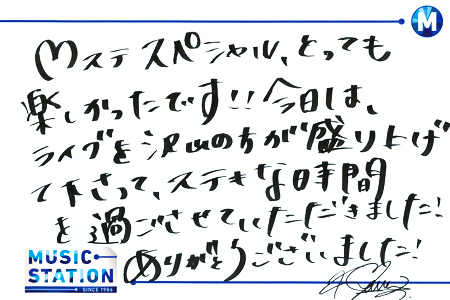 M
Mステスペシャル、とっても
楽しかったです!!今日は、
ライブを沢山の方が盛り上げ
て下さって、ステキな時間
を過ごさせていただきました!
ありがとうございました!
MUSIC
STATION
SINCE 1986